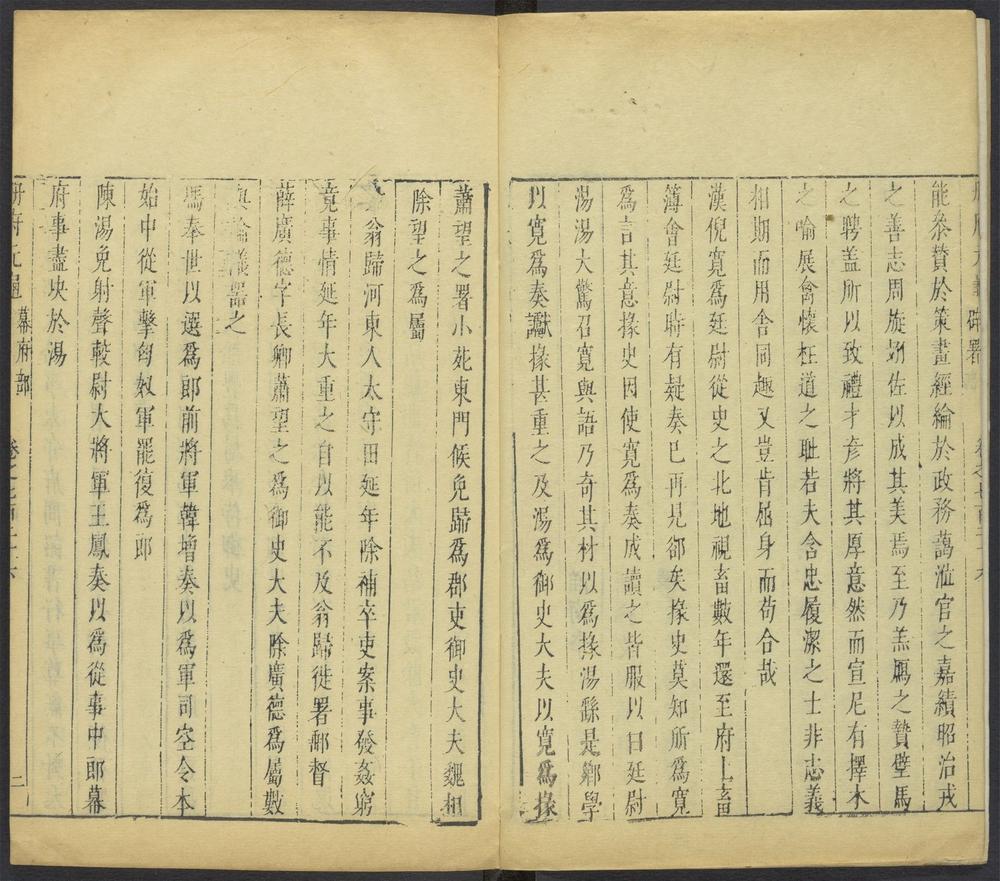 辟署
能參贊於策畫經綸於政務藹涖官之嘉績昭治戎
之善志周旋夘佐以成其美焉至乃羔鴈之贄璧馬
之聘盖所以致禮才彥將其厚意然而宣尼有擇木
之喻展禽懷枉道之耻若夫含忠履潔之士非志義
相期而用舍同趣又豈肯屈身而苟合哉
漢倪寬爲廷尉從史之北地視畜數年還至府上畜
簿會廷尉時有疑奏已再見郤矣掾史莫知所爲寬
爲言其意掾史因使寬爲奏成讀之皆服以白廷尉
湯湯大驚召寬與語乃奇其材以爲掾湯繇是鄉學
以寬爲奏讞掾甚重之及湯爲御史大夫以寬爲掾
蕭望之署小苑東門候免歸爲郡吏御史大夫魏相
除望之爲屬
翁歸河東人太守田延年除補卒吏案事發姦窮
竟事情延年大重之自以能不及翁歸徙署郵督
薛廣德字長卿蕭望之爲御史大夫除廣德爲屬數
與論議器之
馮奉世以選爲郎前將軍韓增奏以爲軍司空令本
始中從軍擊匈奴軍罷復爲郎
陳湯免射聲校尉大將軍王鳳奏以爲從事中郎幕
府事盡決於湯
册府元龜 幕府部 卷之七百二十六 二